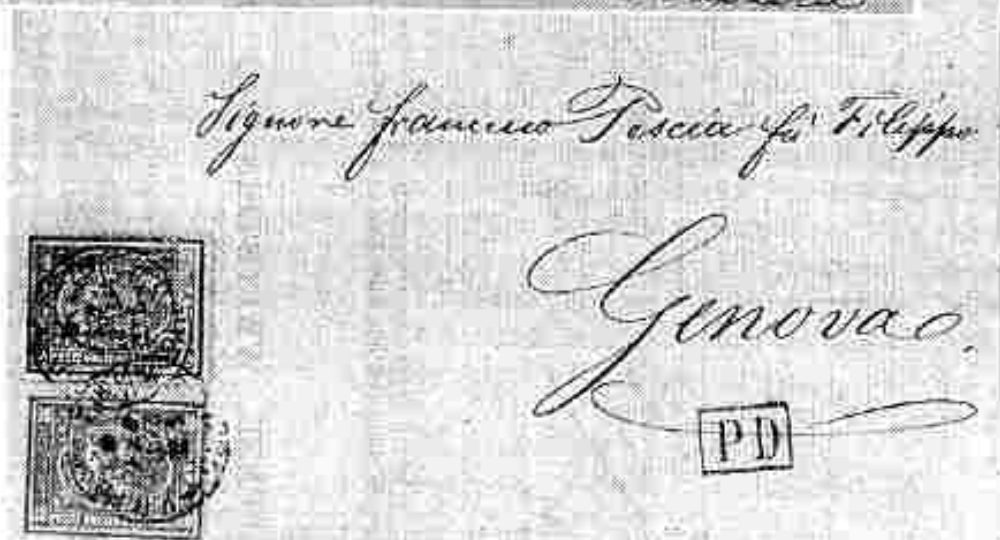 Signore Francesco Pescia fu Filippo
Genova.
PD